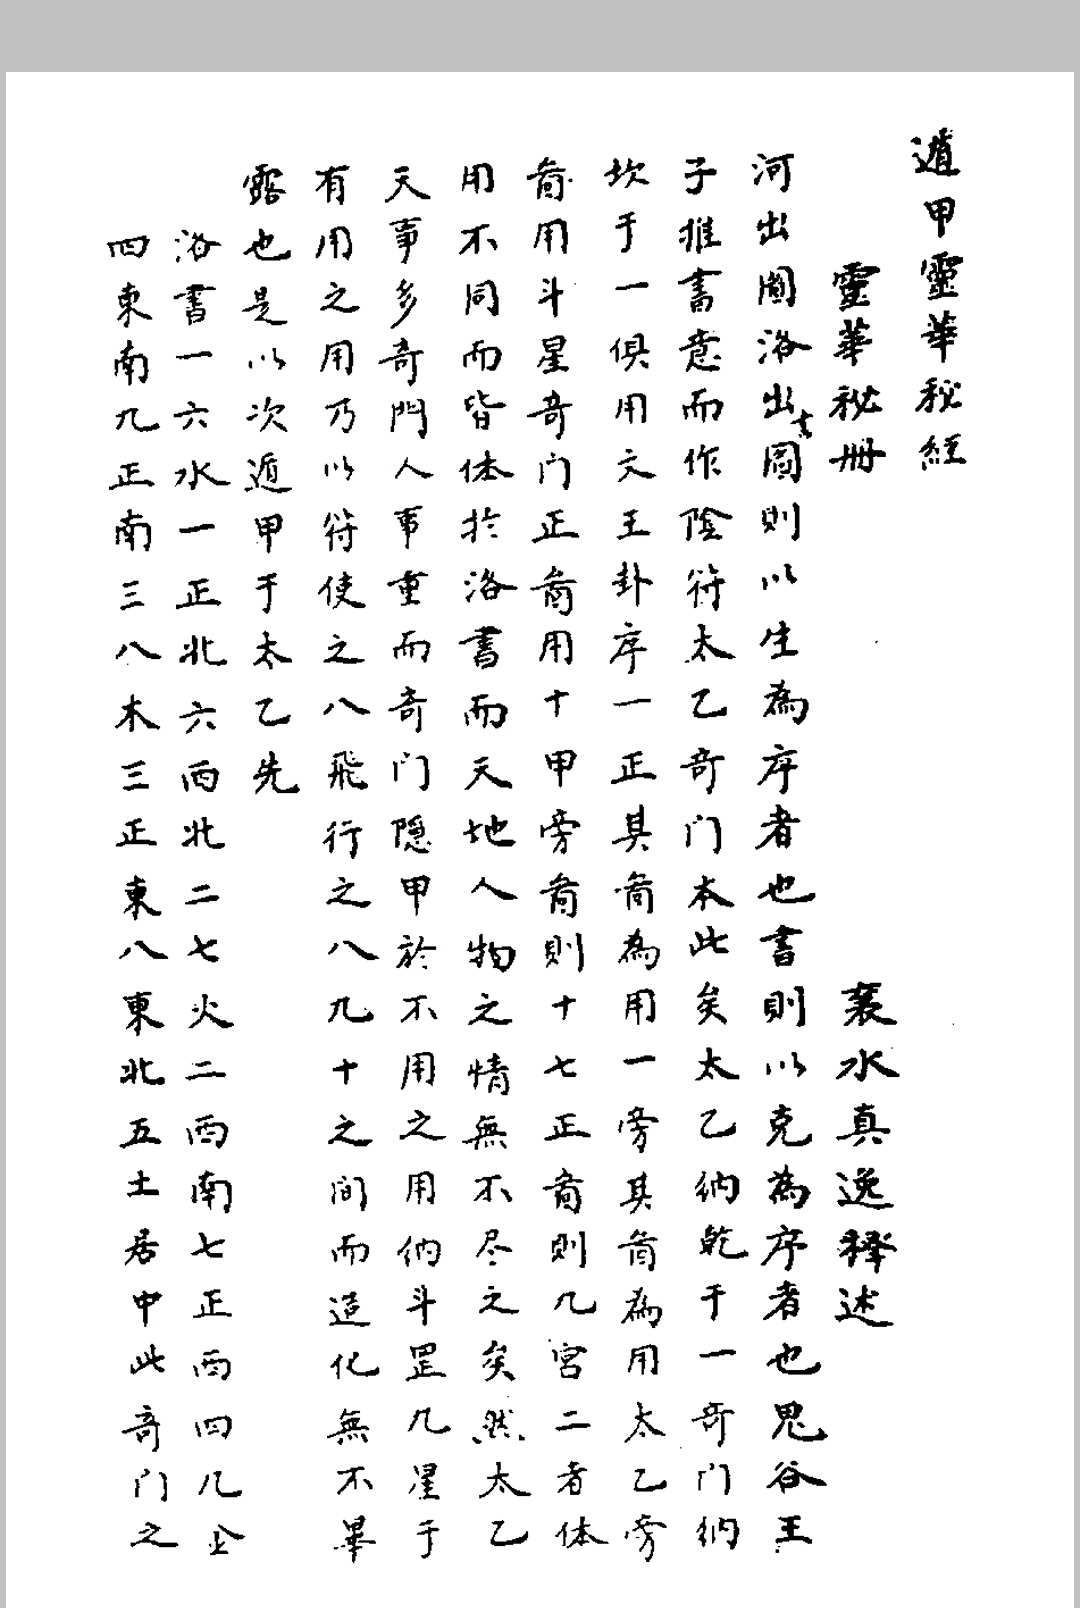 遁甲靈華秘經
靈華秘册 裴水真逸釋述
河出圖洛出書圖則以生為序者也書則以克為序者也鬼谷王
子推書意而作陰符太乙奇门本此矣太乙納乾于一奇门納
坎于一俱用文王卦序一正其 為用一旁其 為用太乙旁
 用斗星奇门正 用十甲旁 則十七正 則九宮二者体
用不同而皆体於洛書而天地人物之情無不尽之矣然太乙
天事多奇門人事重而奇门隐甲於不用之用納斗罡九星于
有用之用乃以符使之八飛行之八九十之间而造化無不畢
露也是以次遁甲于太乙先
洛書一六水一正北六西北二七火二西南七正西四九金
四東南九正南三八木三正東八東北五土居中此奇门之